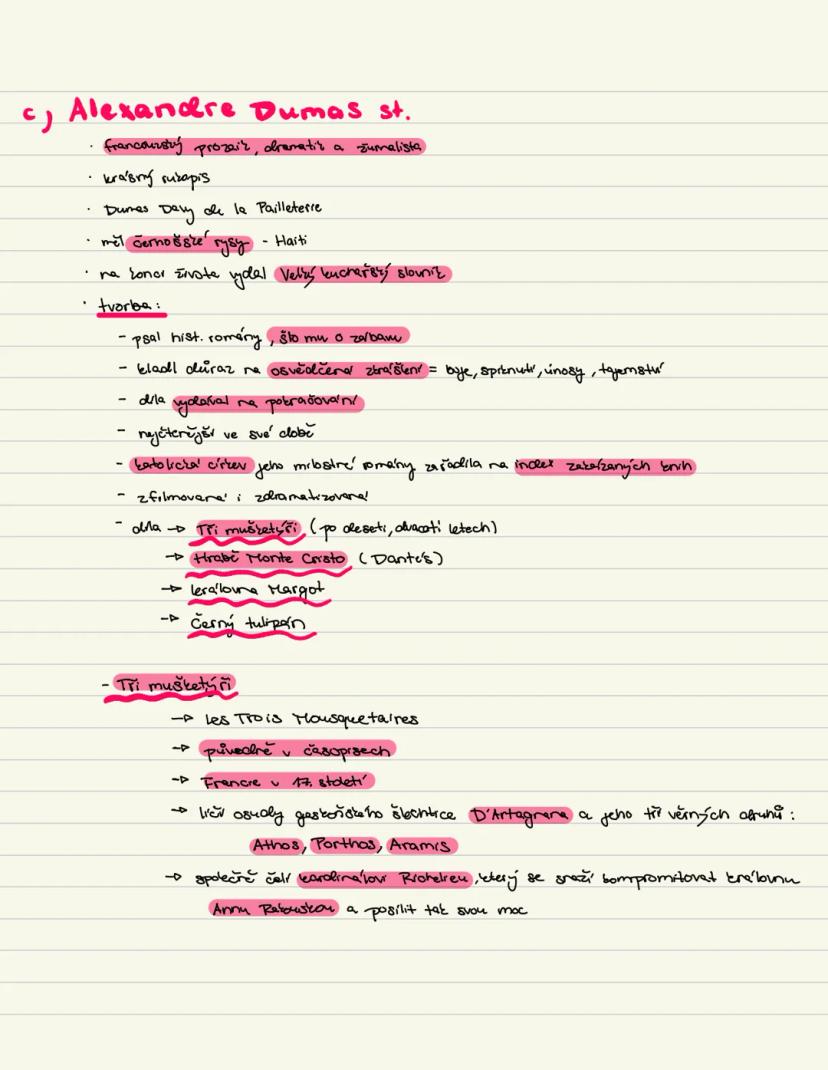 c) Alexandre Dumas st.
· francouzský prozaik, dramatik a žurnalista
· krásný rukopis
· Dumas Davy de la Pailleterie
· měl černošské rysy - Haiti
· na konci života vydal Velký kuchařský slovník
· tvorba:
- psal hist. romány, šlo mu o zábavu
- kladl důraz na osvědčená zkrášlení = boje, spiknutí, únosy, tajemství
- díla vydával na pokračování
- nejčtenější ve své době
- katolická církev jeho milostné romány zařadila na index zakázaných knih
- zfilmovaná i zdramatizovaná
- díla → Tři mušketýři (po deseti, dvaceti letech)
→ Hrabě Monte Cristo (Dantés)
→ královna Margot
→ Černý tulipán
- Tři mušketýři
→ les Trois Mousquetaires
→ původně v časopisech
→ Francie v 17. století
→ líčí osudy gaskoňského šlechtice D'Artagnana a jeho tří věrných druhů:
Athos, Porthos, Aramis
→ společně čelí kardinálovi Richelieu, který se snaží kompromitovat královnu
Annu Rakouskou a posílit tak svou moc